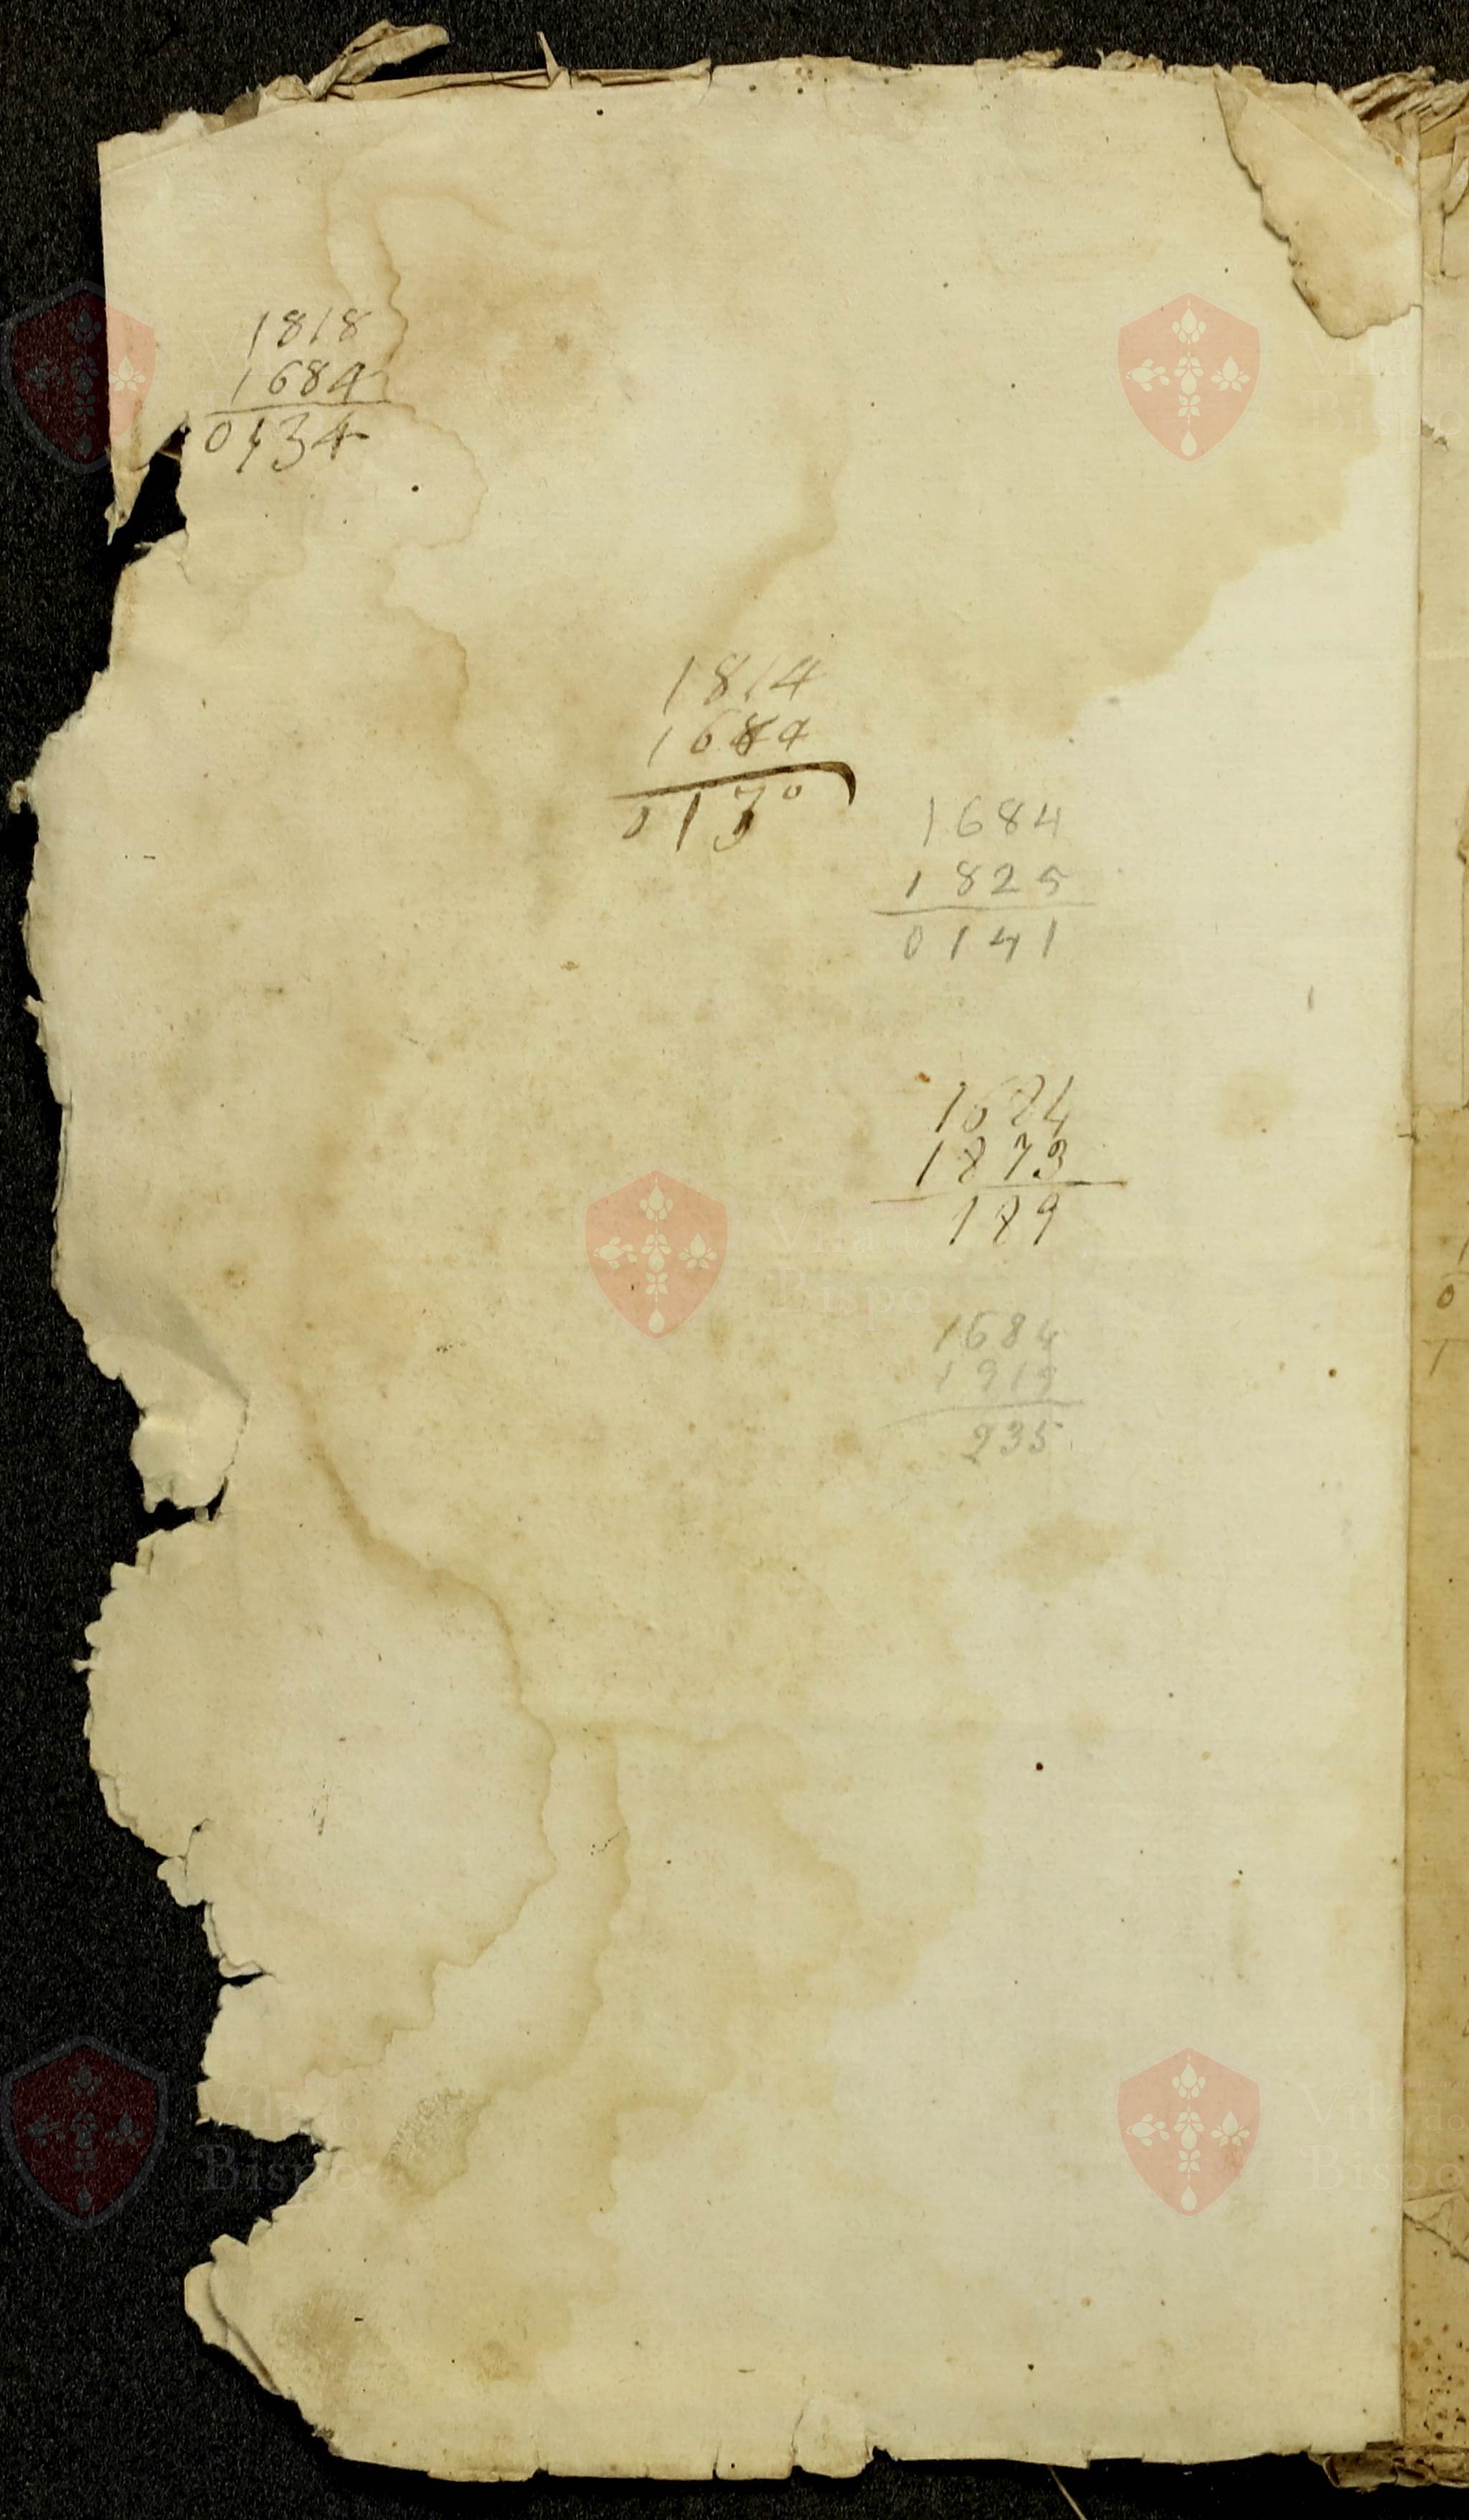 1818
1684
0134
1814
1684
0130
1684
1825
0141
1684
1873
189
1684
1919
235
Vila do
Bispo
Vila do
Bispo
Bispo
Vila do
Bispo